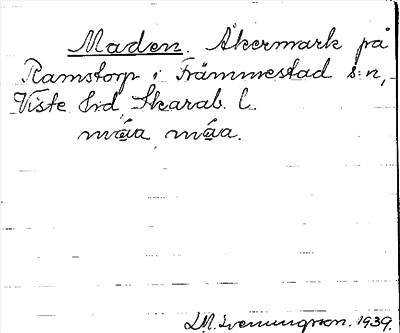 Maden. Åkermark på
Ramstorp i Främmestad s:n,
Viste hrd, Skarab. l.
måa, måa.
L.M. Svenungsson. 1939.